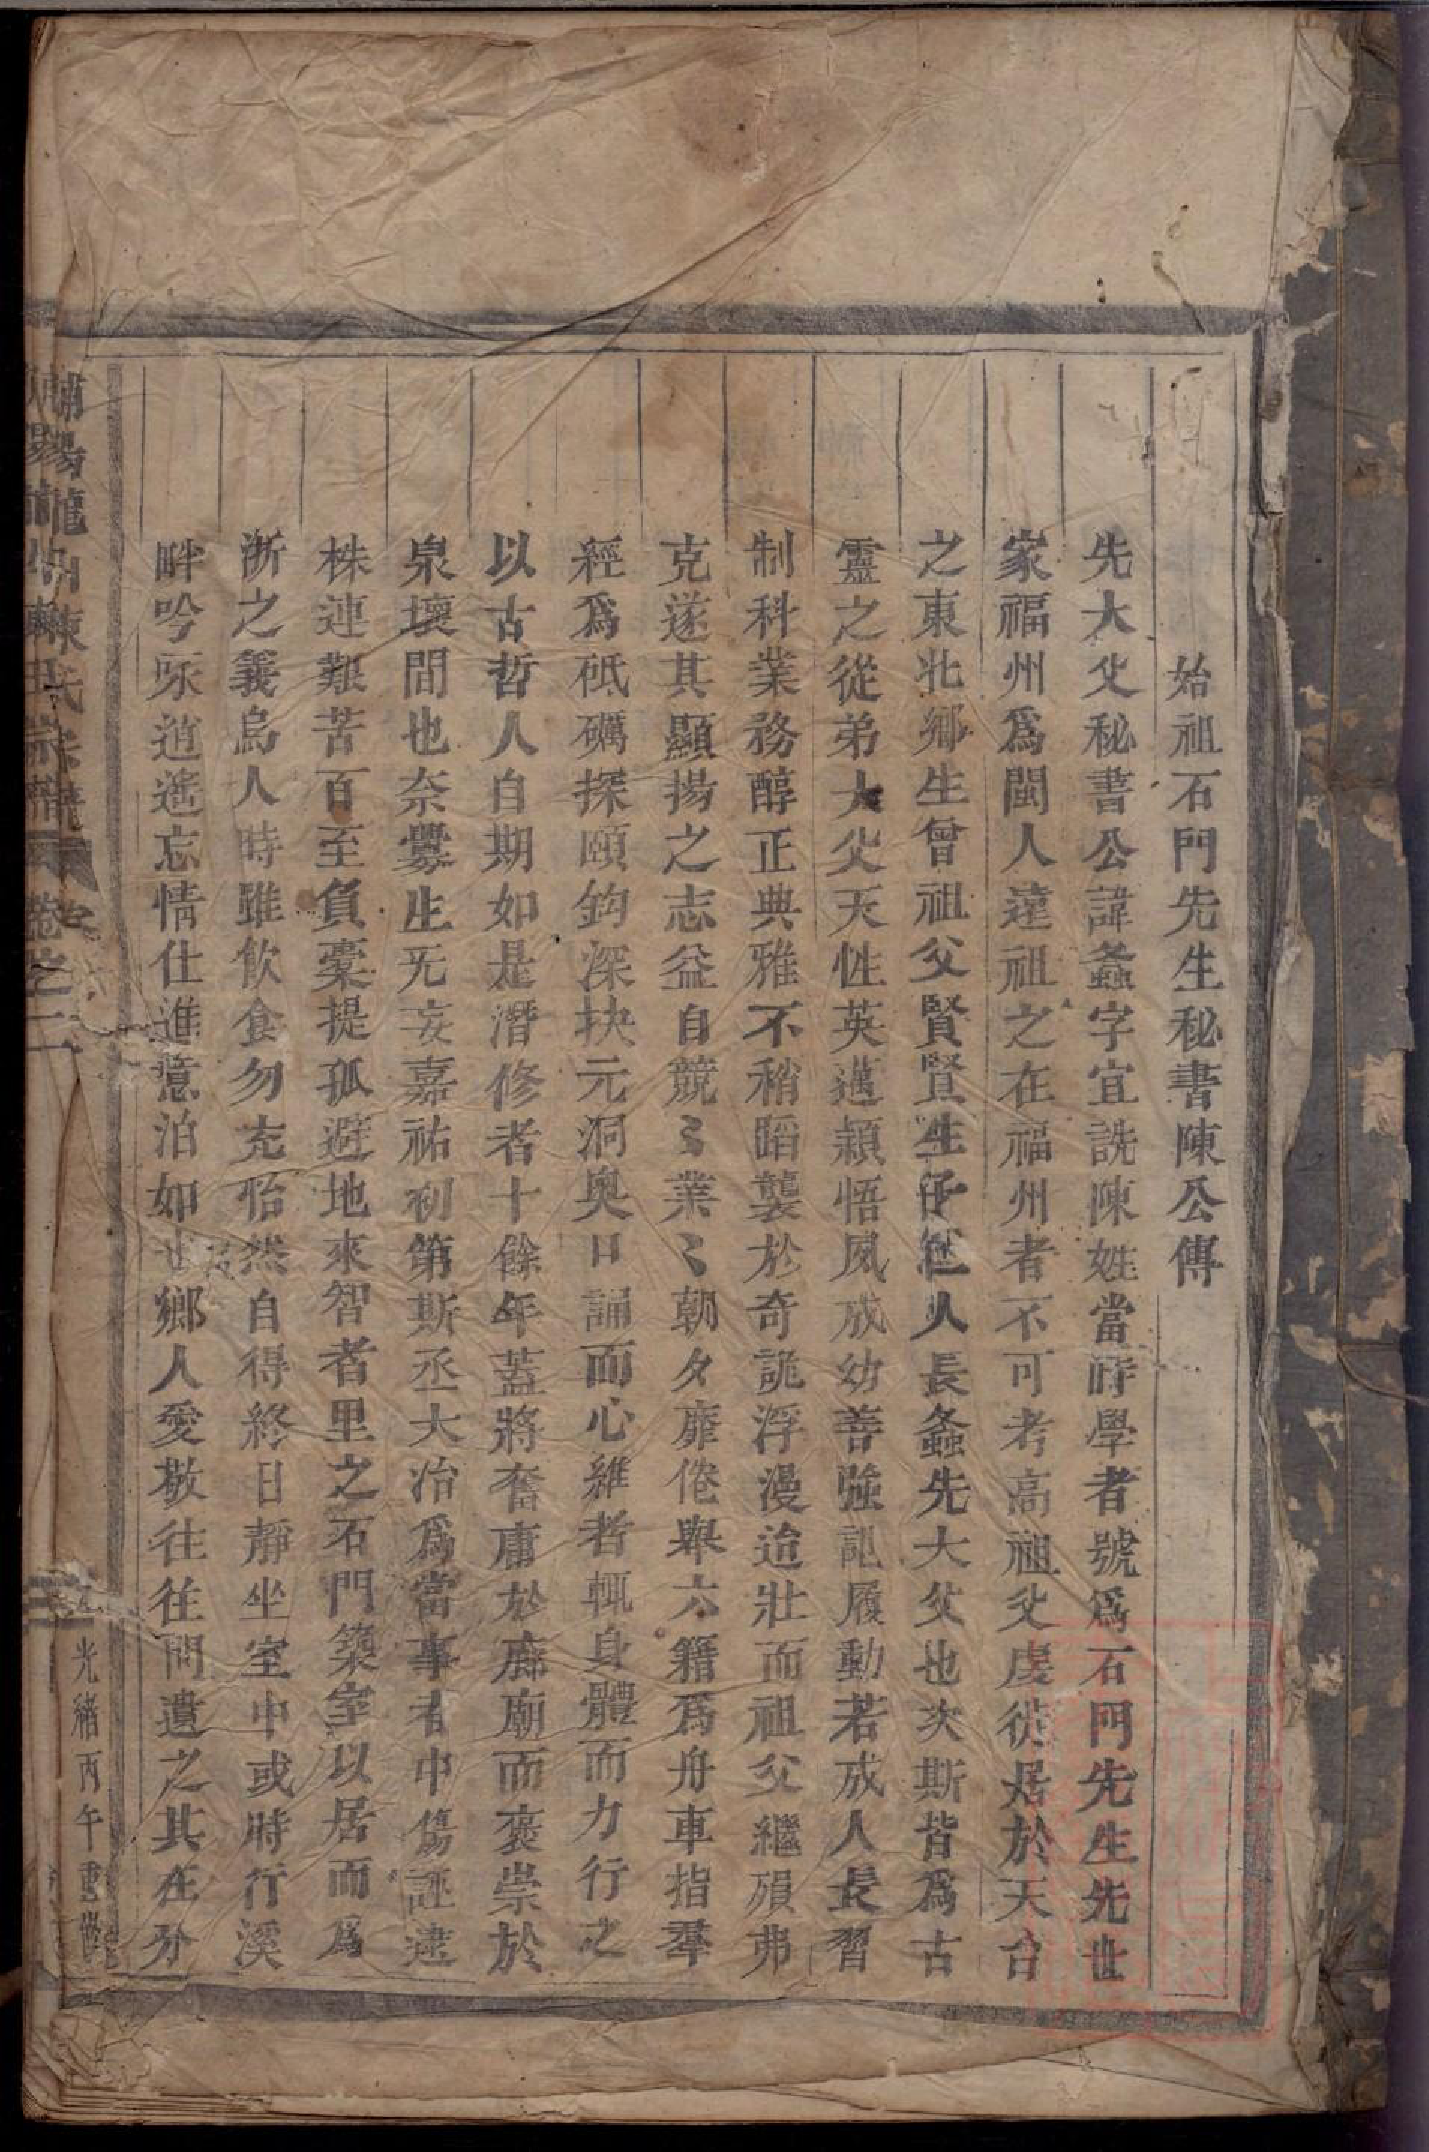 始祖石門先生秘書陳公傳
先大父秘書公諱螽字宜詵陳姓當時學者號爲石門先生先世
家福州爲閩人遠祖之在福州者不可考高祖父虔徙居於天台
之東北鄉生曾祖父賢賢生仔仁人長螽先大父也次斯皆爲古
靈之從弟大父天性英邁穎悟夙成幼善強記履動若成人長習
制科業務醇正典雅不稍蹈襲於奇詭浮漫迨壯而祖父繼殞弗
克遂其顯揚之志益自競〻業〻朝夕靡倦舉六籍爲舟車指羣
經爲砥礪探頤鈎深抉元洞奥日誦而心維者輒身體而力行之
以古哲人自期如是潛修者十餘年蓋將奮庸於廊廟而褒崇於
泉壤間也奈釁生旡妄嘉祐初第斯丞大冶爲當事者中傷誣逮
株連艱苦百至負橐提孤避地來智者里之石門築室以居而爲
浙之義烏人時雖飲食勿充怡然自得終日靜坐室中或時行溪
畔吟哦逍遙忘情仕進意泊如也鄉人愛敬往往問遺之其在分
光緒丙午重修